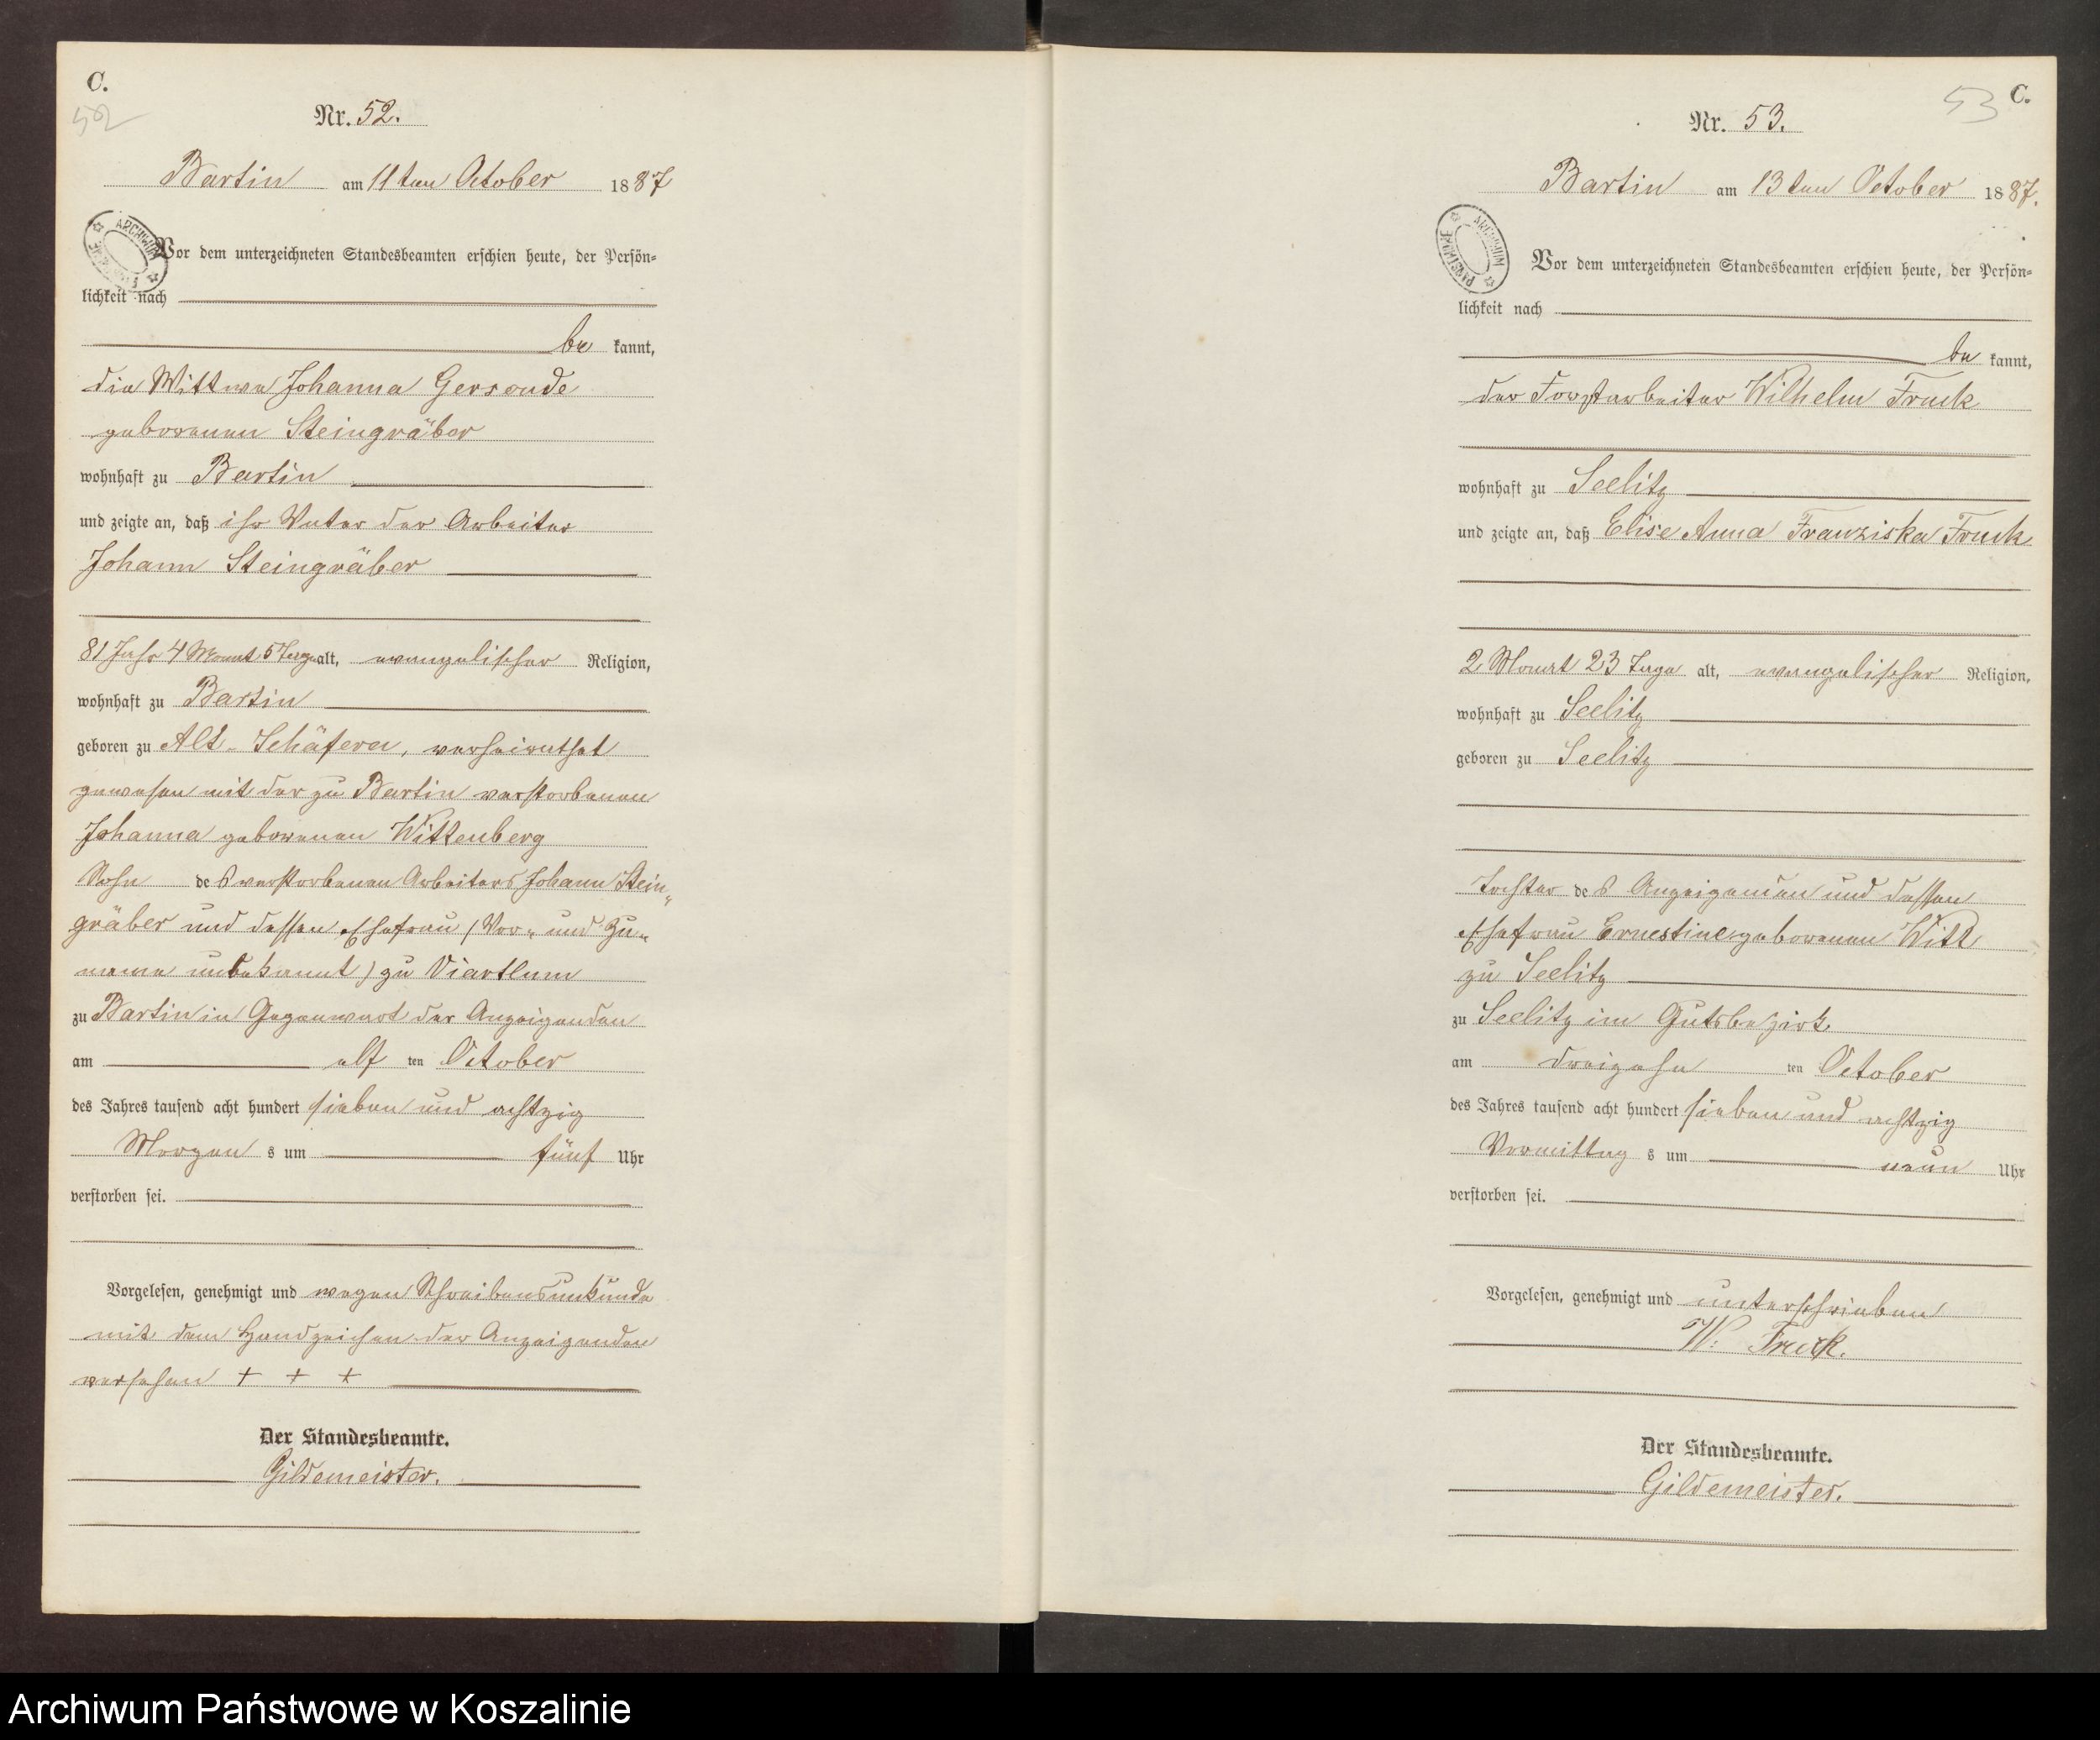 C.
52
Nr. 52.
Bartin am 11ten October 1887
ARCHIWUM
Vor dem unterzeichneten Standesbeamten erschien heute, der Persön=
lichkeit nach
be kannt,
die Wittwe Johanna Gersonde
geborenen Steingräber
wohnhaft zu Bartin
und zeigte an, daß ihr Vater der Arbeiter
Johann Steingräber
81 Jahr 4 Monat 5 Tage alt, evangelischer Religion,
wohnhaft zu Bartin
geboren zu Alt-Schäferei, verheirathet
gewesen mit der zu Bartin verstorbenen
Johanna geborenen Wittenberg
Sohn des verstorbenen Arbeiters Johann Stein„
gräber und dessen Ehefrau (Vor„ und Zu„
name unbekannt) zu Viartlum
zu Bartin in Gegenwart der Anzeigenden
am elf ten October
des Jahres tausend acht hundert sieben und achtzig
Morgen s um fünf Uhr
verstorben sei.
Vorgelesen, genehmigt und wegen Schreibensunkunde
mit dem Handzeichen der Anzeigenden
versehen + + +
Der Standesbeamte.
Gildemeister.
53
C.
Nr. 53.
Bartin am 13ten October 1887.
ARCHIWUM PAŃSTWOWE
Vor dem unterzeichneten Standesbeamten erschien heute, der Persön=
lichkeit nach
be kannt,
der Forstarbeiter Wilhelm Fruck
wohnhaft zu Seelitz
und zeigte an, daß Elise Anna Franziska Fruck
2 Monat 23 Tage alt, evangelischer Religion,
wohnhaft zu Seelitz
geboren zu Seelitz
Tochter des Anzeigenden und dessen
Ehefrau Ernestine geborenen Witt
zu Seelitz
zu Seelitz im Gutsbezirk
am dreizehn ten October
des Jahres tausend acht hundert sieben und achtzig
Vormittag s um neun Uhr
verstorben sei.
Vorgelesen, genehmigt und unterschrieben
W. Fruck.
Der Standesbeamte.
Gildemeister.
Archiwum Państwowe w Koszalinie